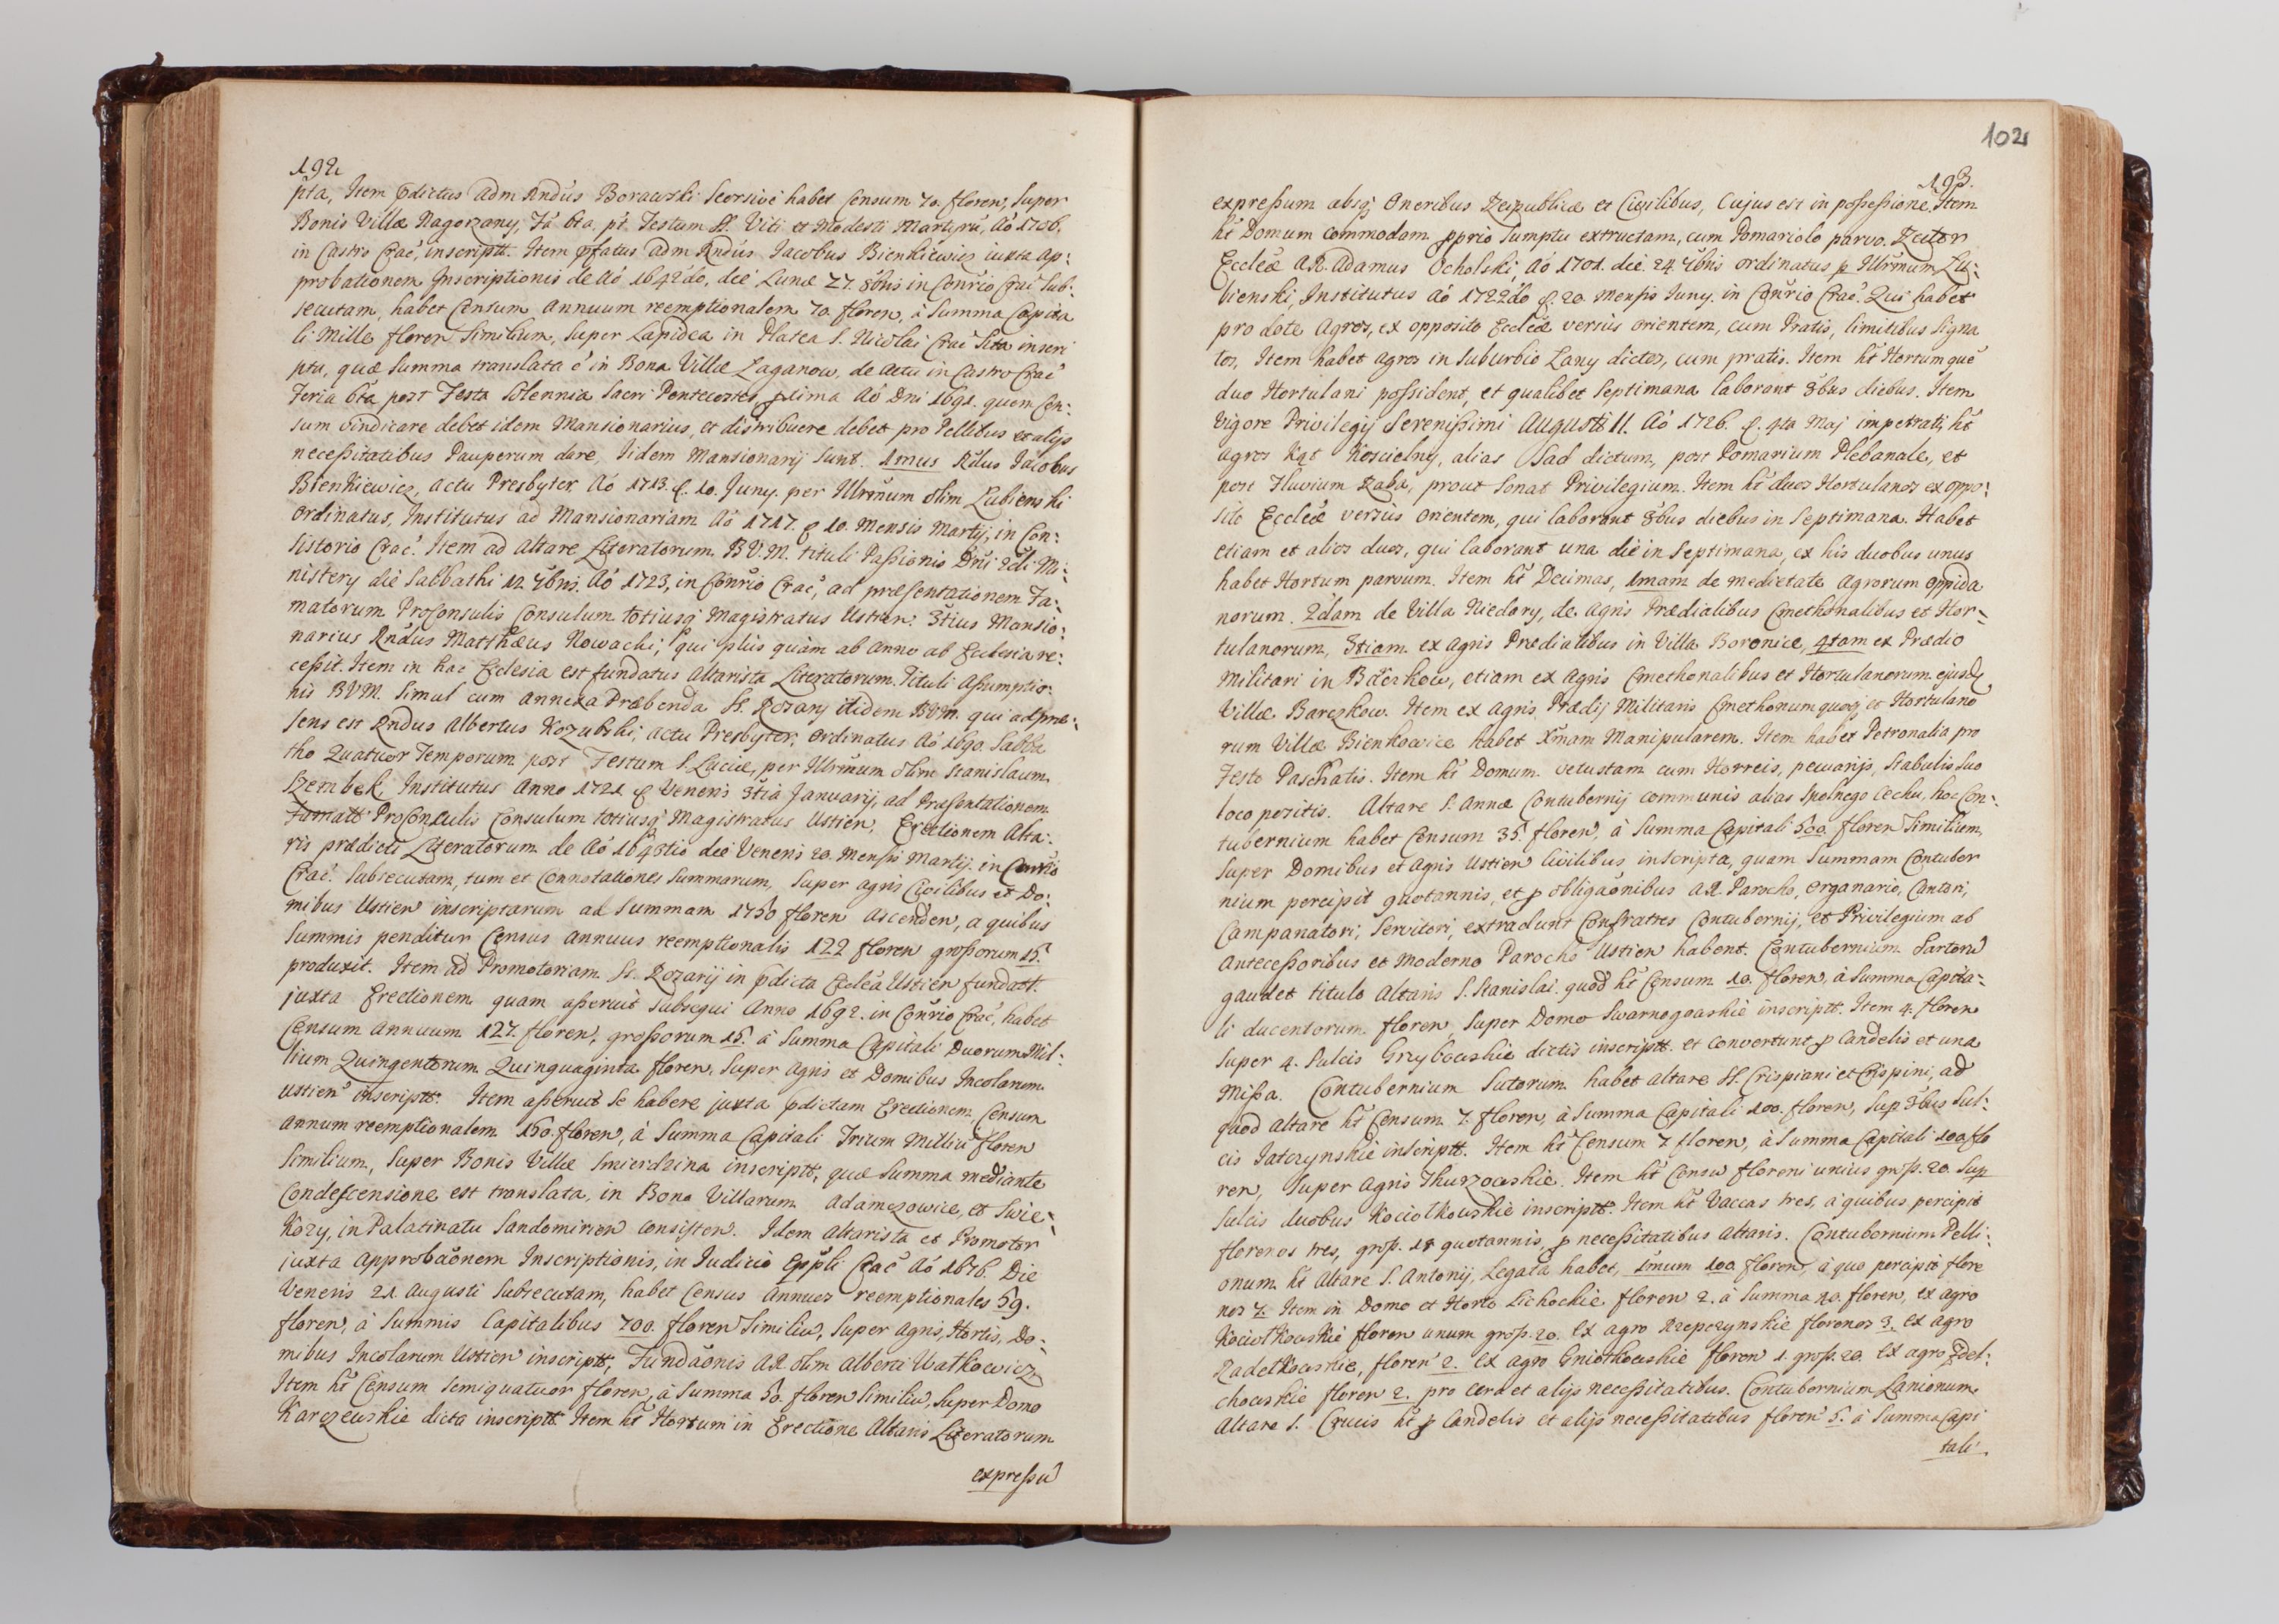 192
pta, Item pdictus adm Rndus Borawski Seorsivè habet Censum 70. floren, Super
Bonis Villæ Nagorzany, Fã 6ta, pt. Festum SS. Viti et Modesti Martyrũ, Aõ 1706.
in Castro Crac, inscriptt. Item pfatus adm Rndus Jacobus Bienkiewicz iuxta ap:
probationem Inscriptionis de Aõ 1642do, die Lunæ 27. 8bris in Conrio Crac Sub:
secutam, habet Censum Annuum reemptionalem 70. floren, à Summa Capita
li Mille floren Similium, Super Lapidea in Platea S. Nicolai Crac Sita inscri
pta, quæ Summa translata ẽ in Bona Villæ Łaganow, de actu in Castro Crac
Feria 6ta post Festa Solennia Sacri Pentecostes pxima Aõ Dni 1691. quem Cen:
sum vindicare debet idem Mansionarius, et distribuere debet pro Pellibus et alijs
necessitatibus Pauperum dare, Iidem Mansionarij Sunt. 1mus Rdus Jacobus
Bienkiewicz, actu Presbyter, Aõ 1713. d. 10. Juny. per Illrmum olim Łubienski
Ordinatus, Institutus ad Mansionariam Aõ 1717. d 10. Mensis Martij, in Con:
sistorio Crac. Item ad Altare Literatorum B.V.M. tituli Passionis Dni 2di Mi:
nistery die Sabbathi 12. 7bris. Aõ 1723, in Conrio Crac, ad præsentationem Fa:
matorum ProConsulis Consulum totiusq Magistratus Ustien. 3tius Mansio:
narius Rndus Matthæus Nowacki, qui plus quàm ab anno ab Ecclesia re:
cessit. Item in hac Ecclesia est fundatus Altarista Literatorum. Tituli Assumptio:
nis BVM. Simul cum annexa Præbenda SS. Rozarij itidem BVM. qui ad præ:
sens est Rndus Albertus Kozubski, actu Presbyter, ordinatus Aõ 1690. Sabba
tho Quatuor Temporum post Festum S. Luciæ, per Illrmum olim Stanislaum
Szembek, Institutus Anno 1721 d Veneris 3tia Januarij, ad Præsentationem
Famatt ProConsulis Consulum totiusq Magistratus Ustien, Erectionem Alta:
ris prædicti Literatorum de Aõ 1643tio die Veneris 20. Mensis Martij. in Conrio
Crac. Subsecutam, tum et Connotationes Summarum, Super agris Civilibus et Do:
mibus Ustien inscriptarum ad Summam 1750 floren ascenden, a quibus
Summis penditur Census annuus reemptionalis 122 floren grossorum 15.
produxit. Item ad Promotoriam SS. Rozarij in pdicta Ecclẽa Ustien fundatt.
juxta Erectionem quam asseruit Subsequi Anno 1692. in Conrio Crac, habet
Censum annuum 127. floren, grossorum 15. à Summa Capitali Duorum Mil:
lium Quingentorum Quinquaginta floren, Super Agris et Domibus Incolarum
Ustien inscriptt. Item asseruit Se habere juxta pdictam Erectionem Censum
annuum reemptionalem 150. floren, à Summa Capitali Trium Milliũ floren
Similium, Super Bonis Villæ Smierdzina inscriptt, quæ Summa mediante
Condescensione est translata, in Bona Villarum Adamczowice, et Swie:
kozy, in Palatinatu Sandomirien consisten. Idem Altarista et Promotor
juxta approbãonem Inscriptionis, in Judicio Eppli Crac Aõ 1676. Die
Veneris 21 Augusti Subsecutam, habet Census Annuos reemptionales 59.
floren, à Summis Capitalibus 700. floren Similiũ, Super agris, Hortis, Do:
mibus Incolarum Ustien inscriptt, Fundãonis AR. olim Alberti Watkowicz
Item ht Censum Semiquatuor floren, à Summa 50. floren Similiũ, Super Domo
Karczewskie dicta inscriptt. Item ht Hortum in Erectione Altaris Literatorum
expressũ
102
193.
expressum absq; Oneribus Reipublicæ et Civilibus, Cujus est in possessione. Item
ht Domum commodam pprio Sumptu extructam, cum Pomariolo parvo. Rector
Ecclẽæ A.R. Adamus Ocholski, Aõ 1701. die. 24. 7bris ordinatus p Illrmum Łu:
bienski, Institutus Aõ 1722do d. 20. Mensis Juny. in Conrio Crac. Qui habet
pro dote Agros, ex opposito Ecclẽæ versùs orientem, cum Pratis, limitibus Signa
tos, Item habet agros in Suburbio Łany dictos, cum pratis. Item ht Hortum quẽ
duo Hortulani possident, et qualibet Septimana laborant 3bus diebus. Item
vigore Privilegij Serenissimi Augusti II. Aõ 1726. d. 4ta Maj impetrati, ht
agros Kąt Koscielny, alias Sad dictum, post Pomarium Plebanale, et
post Fluvium Raba, prout Sonat Privilegium. Item ht duos Hortulanos ex oppo:
sito Ecclẽæ versùs Orientem, qui laborant 3bus diebus in Septimana. Habet
etiam et alios duos, qui laborant una die in Septimana, ex his duobus unus
habet Hortum parvum. Item ht Decimas, 1mam de medietate Agrorum Oppida
norum. 2dam de Villa Niedary, de Agris Prædialibus Cmethonalibus et Hor=
tulanorum, 3tiam ex Agris Prædialibus in Villa Boronice, 4tam ex Prædio
Militari in Barczkow, etiam ex Agris Cmethonalibus et Hortulanorum ejusd
Villæ Barczkow. Item ex Agris Prædij Militaris Cmethonum quoq et Hortulano
rum Villæ Bienkowice habet Xmam Manipularem. Item habet Petronalia pro
Festo Paschatis. Item ht Domum vetustam cum Horreis, pecuarijs, Stabulis Suo
loco positis. Altare S. Annæ Contubernij communis alias Spolnego Cechu, hoc Con:
tubernium habet Censum 35. floren, à Summa Capitali 500. floren Similium,
Super Domibus et Agris Ustien Civilibus inscripta, quam Summam Contuber
nium percipit quotannis, et p obligãonibus A.R. Parocho, Organario, Cantori,
Campanatori, Servitori, extradunt Confratres Contubernij, et Privilegium ab
Antecessoribus et Moderno Parocho Ustien habent. Contubernium Sartorũ
gaudet titulo Altaris S. Stanislai. quod ht Censum 10. floren, à Summa Capita:
li ducentorum floren Super Domo Swarnogoaskie inscriptt. Item 4. floren
Super 4. Sulcis Grzybowskie dictis inscriptt. et convertunt p Candelis et una
Missa. Contubernium Sutorum habet altare SS. Crispiani et Crispini, ad
quod altare ht Censum 7. floren, à Summa Capitali 100. floren, Sup 3bus Sul:
cis Jatczynskie inscriptt. Item ht Censum 7 floren, à Summa Capitali 100 flo
ren, Super Agris Thurzowskie. Item ht Censũ floreni unius gross. 20. Sup
Sulcis duobus Kociolkowskie inscriptt. Item ht Vaccas tres, à quibus percipit
florenos tres, gross. 18 quotannis, p necessitatibus Altaris. Contubernium Pelli:
onum ht Altare S. Antonij, Legata habet, 1mum 100 floren, à quo percipit flore
nos 7. Item in Domo et Horto Lichockie floren 2. à Summa 20. floren, ex agro
Kociolkowskie floren unum gross. 20. ex agro Rzepczynskie florenos 3. ex agro
Radolkowskie, floren 2. ex agro Gniotkowskie floren 1. gross. 20. ex agro Zdel:
chowskie floren 2. pro cera et alijs necessitatibus. Contubernium Lanionum
Altare S. Crucis ht p Candelis et alijs necessitatibus floren 5. à Summa Capi
tali.